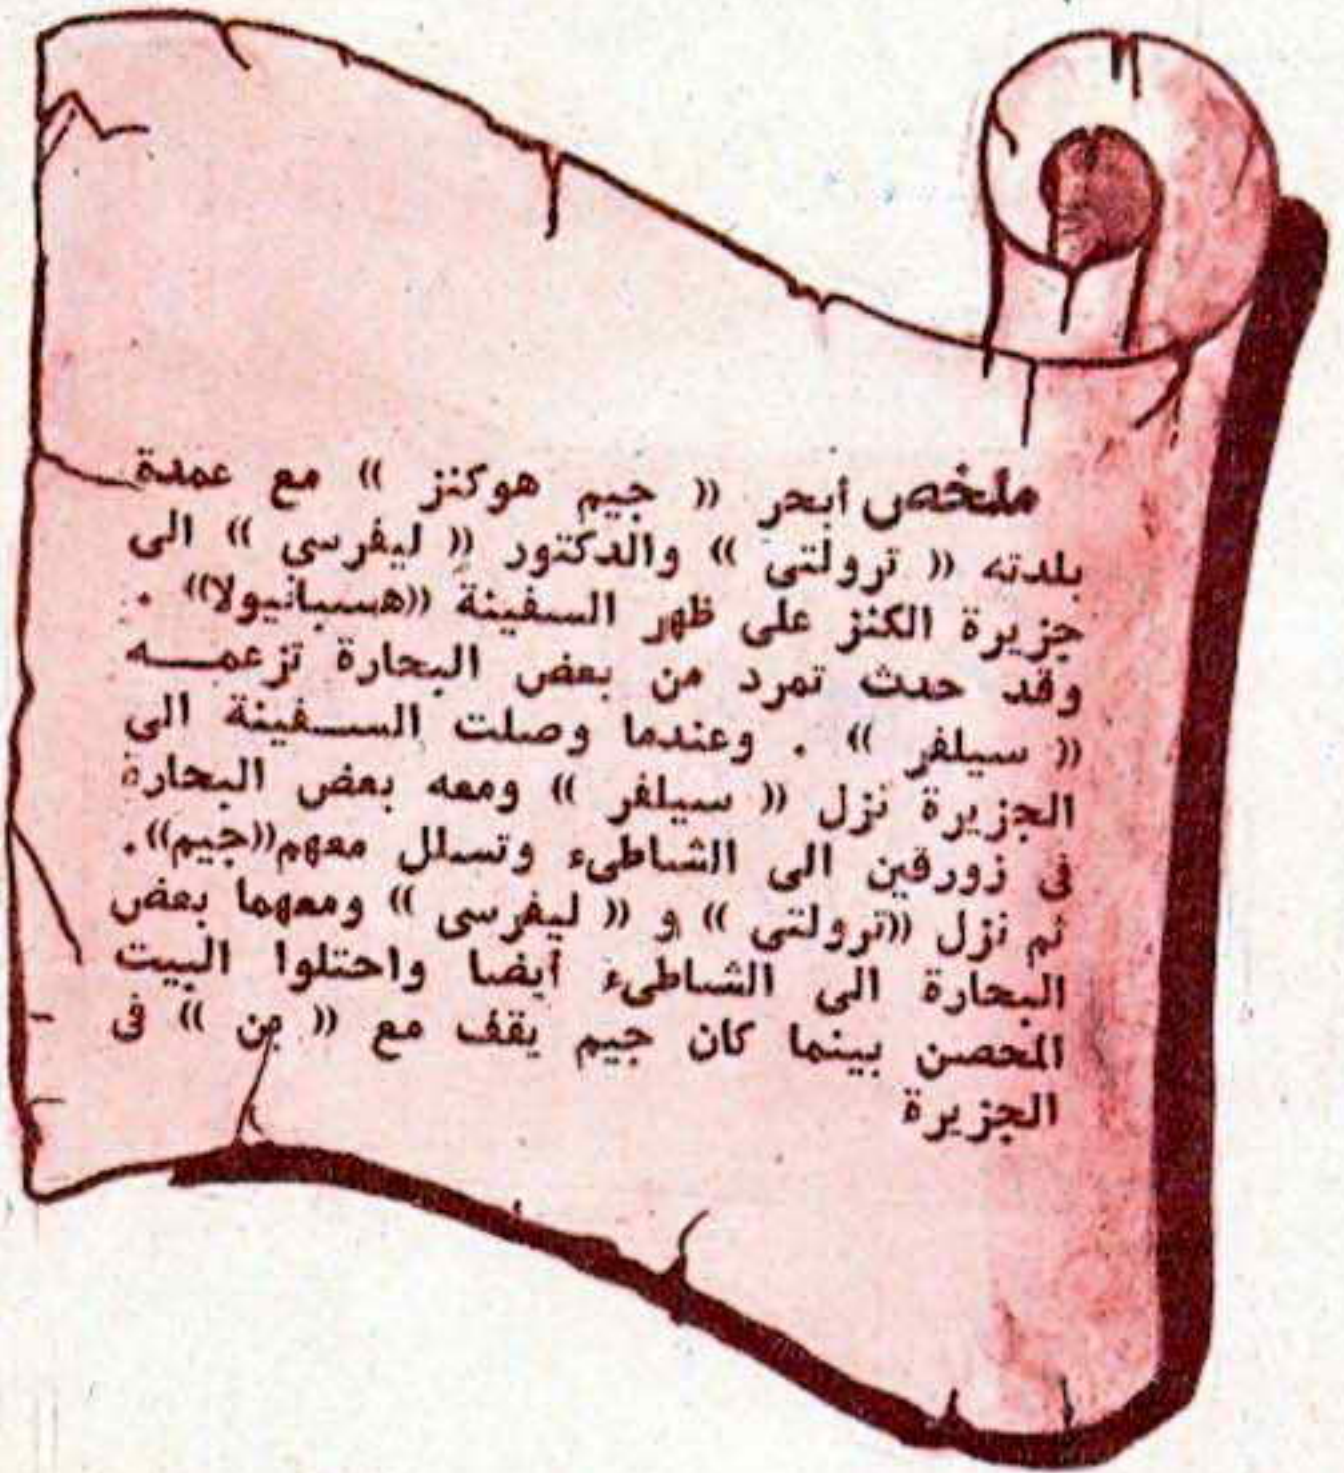 ملخص أبحر (( جيم هوكنز )) مع عمدة
بلدته (( ترولتى )) والدكتور (( ليفرسى )) الى
جزيرة الكنز على ظهر السفينة ((هسبانيولا)) .
وقد حدث تمرد من بعض البحارة تزعمـــه
(( سيلفر )) . وعندما وصلت الســفينة الى
الجزيرة نزل (( سيلفر )) ومعه بعض البحارة
فى زورقين الى الشاطىء وتسلل معهم((جيم)).
ثم نزل ((ترولتى )) و (( ليفرسى )) ومعهما بعض
البحارة الى الشاطىء أيضا واحتلوا البيت
المحصن بينما كان جيم يقف مع (( بن )) فى
الجزيرة